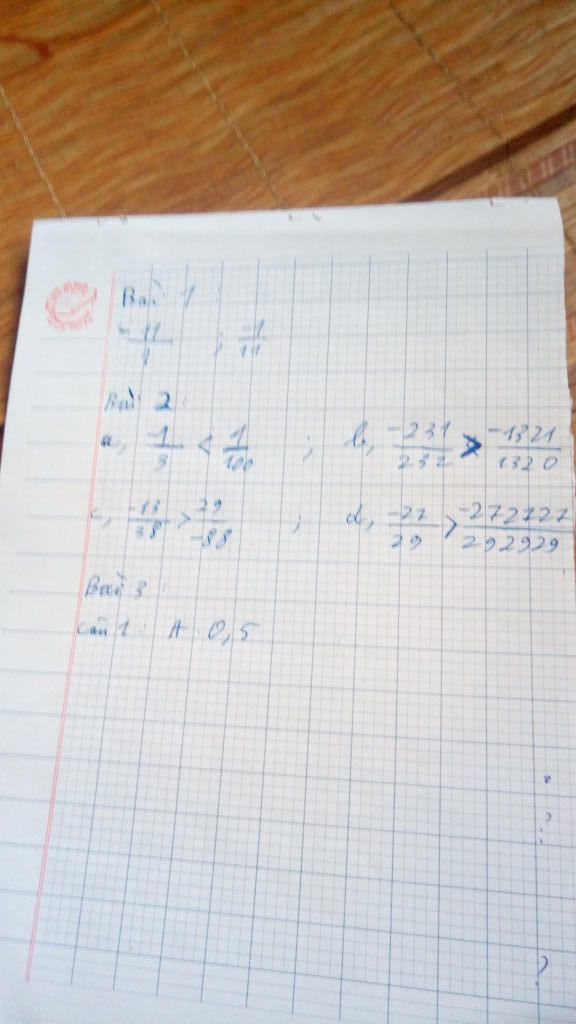 Bài 1 :
-11/1 ; -1/11
Bài 2 :
a, -1/3 < 1/100 ; b, -231/232 > -1321/1320
c, -13/38 > 29/-88 ; d, -27/29 > -272727/292929
Bài 3 :
Câu 1 : A 0,5
?
?